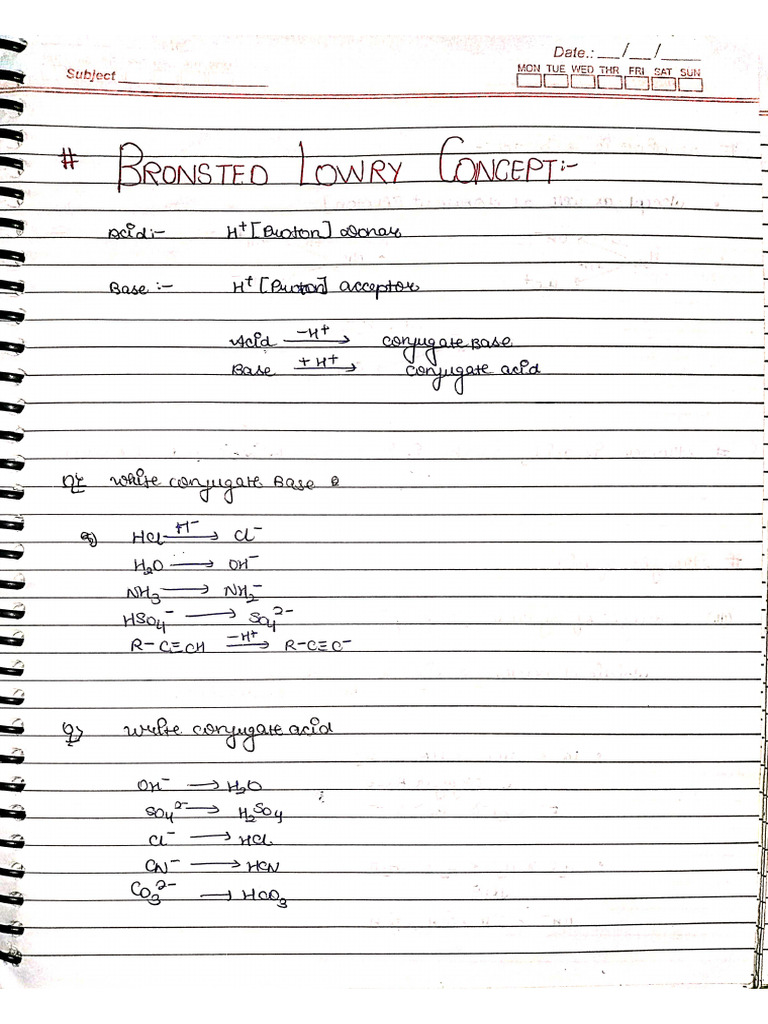 Date.: __/__/____
Subject ____________
MON TUE WED THR FRI SAT SUN
# BRONSTED LOWRY CONCEPT:-
Acid:- H⁺ [Proton] donar
Base :- H⁺ [Proton] acceptor
Acid —-H⁺→ conjugate Base
Base —+H⁺→ conjugate acid
write conjugate Base
HCl —H⁻→ Cl⁻
H₂O → OH⁻
NH₃ → NH₂⁻
HSO₄⁻ → SO₄²⁻
R-C≡CH —-H⁺→ R-C≡C⁻
Q) write conjugate acid
OH⁻ → H₂O
SO₄²⁻ → H₂SO₄
Cl⁻ → HCl
CN⁻ → HCN
CO₃²⁻ → HCO₃